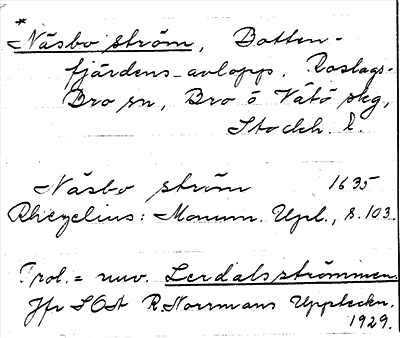 *
Näsbo ström, Botten-
fjärdens avlopp. Roslags-
Bro sn, Bro ö Vätö skg,
Stockh. l.
Näsbo ström 1635
Rhezelius: Monum. Upl., s. 103.
Trol. = nuv. Lerdalsströmmen.
Jfr SOA R. Norrmans Uppteckn.
1929.